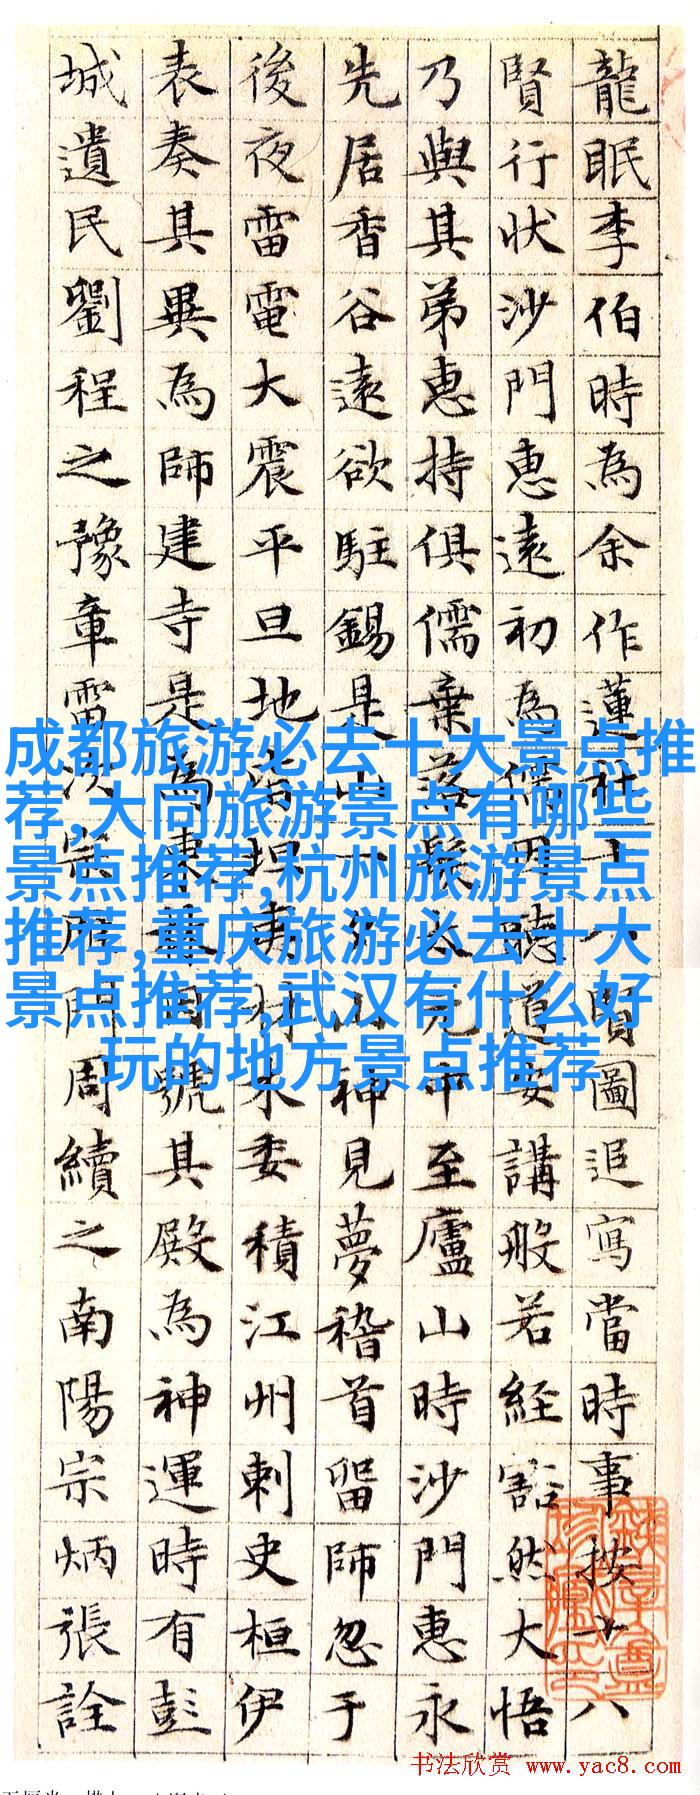 龍眠李伯時為余作蓮社十八賢圖追寫當時事按十八
賢行狀沙門惠遠初為儒因聽道安講般若經豁然大悟
乃與其弟惠持俱儒棄落髮太元中至廬山時沙門惠永
先居香谷遠欲駐錫是山一夕山神見夢稽首留師忽于
後夜雷電大震平旦地皆坦夷材木委積江州刺史桓伊
表奏其異為師建寺是為東林目號其殿為神運時有彭
城遺民劉程之豫章雷次宗鴈門周續之南陽宗炳張詮
成都旅游必去十大景点推
荐,大同旅游景点有哪些
景点推荐,杭州旅游景点
推荐,重庆旅游必去十大
景点推荐,武汉有什么好
玩的地方景点推荐
书法欣赏 www.yac8.com